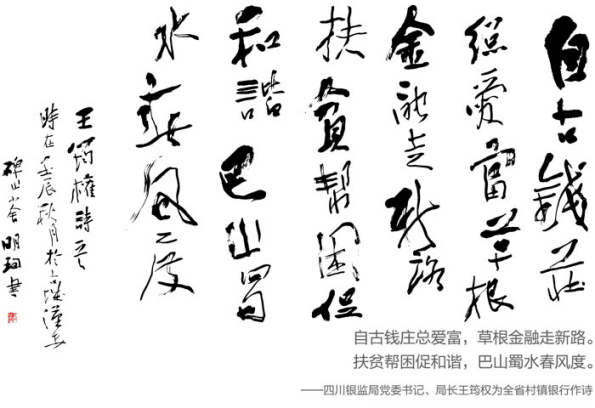 自古錢莊
總愛富草根
金融走新路
扶貧幫困促
和諧巴山蜀
水春风度
王筠權詩
時在壬辰秋月於漢安
明書
自古钱庄总爱富，草根金融走新路。
扶贫帮困促和谐，巴山蜀水春风度。
——四川银监局党委书记、局长王筠权为全省村镇银行作诗